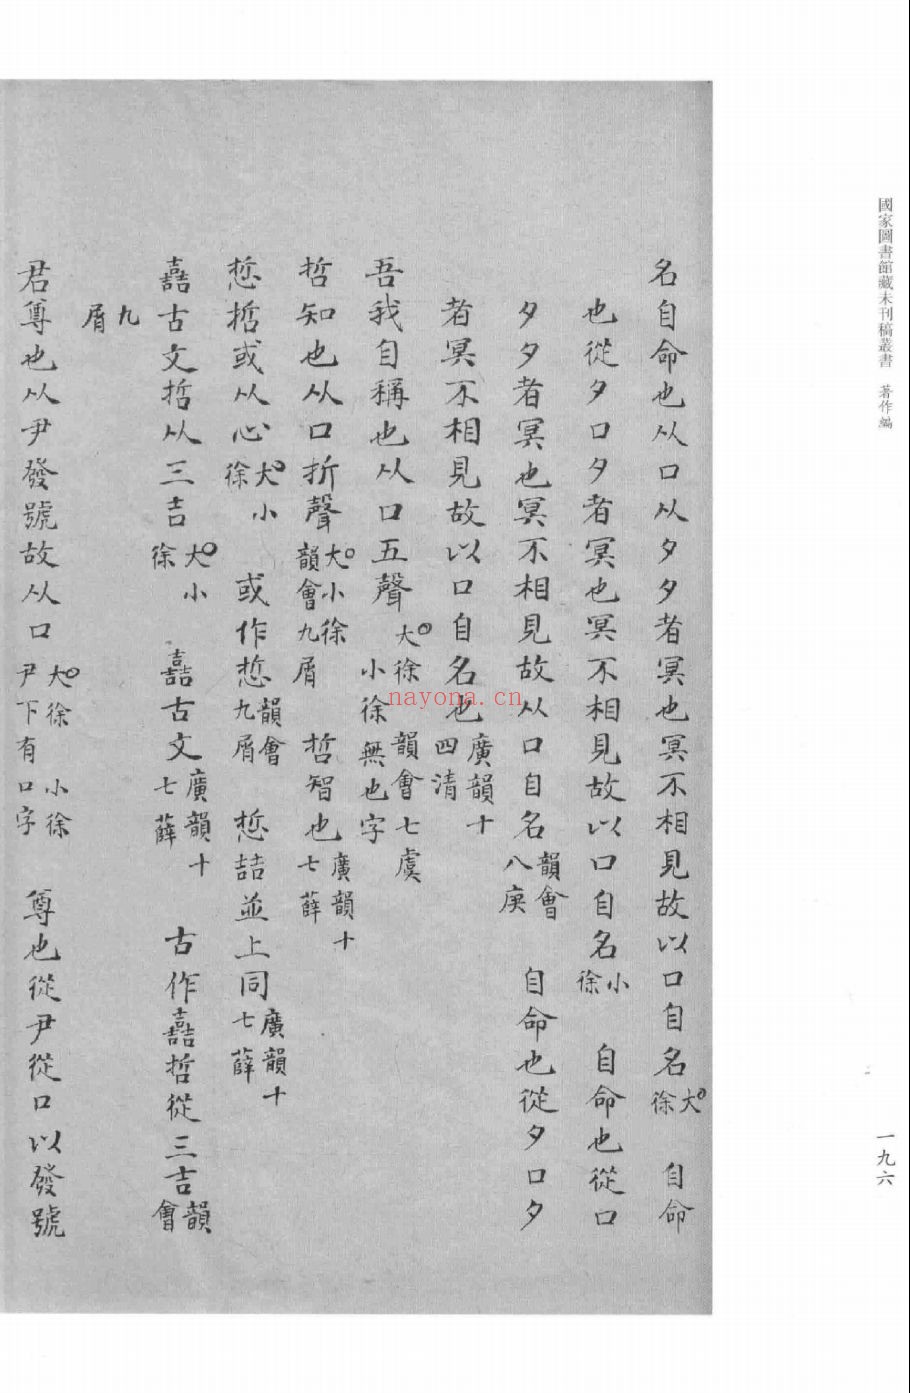 國家圖書館藏未刊稿叢書 著作編
一九六
名自命也从口从夕夕者冥也冥不相見故以口自名大徐 自命
也從夕口夕者冥也冥不相見故以口自名小徐 自命也從口
夕夕者冥也冥不相見故从口自名韻會八庚 自命也從夕口夕
者冥不相見故以口自名也廣韻十四清
吾我自稱也从口五聲大徐 韻會七虞小徐無也字
哲知也从口折聲大小徐韻會九屑 哲智也廣韻十七薛
悊哲或从心大小徐 或作悊韻會九屑 悊喆並上同廣韻十七薛
嚞古文哲从三吉大小徐 嚞古文廣韻十七薛 古作嚞哲從三吉韻會
九屑
君尊也从尹發號故从口大徐 小徐尹下有口字 尊也從尹從口以發號
nayona.cn